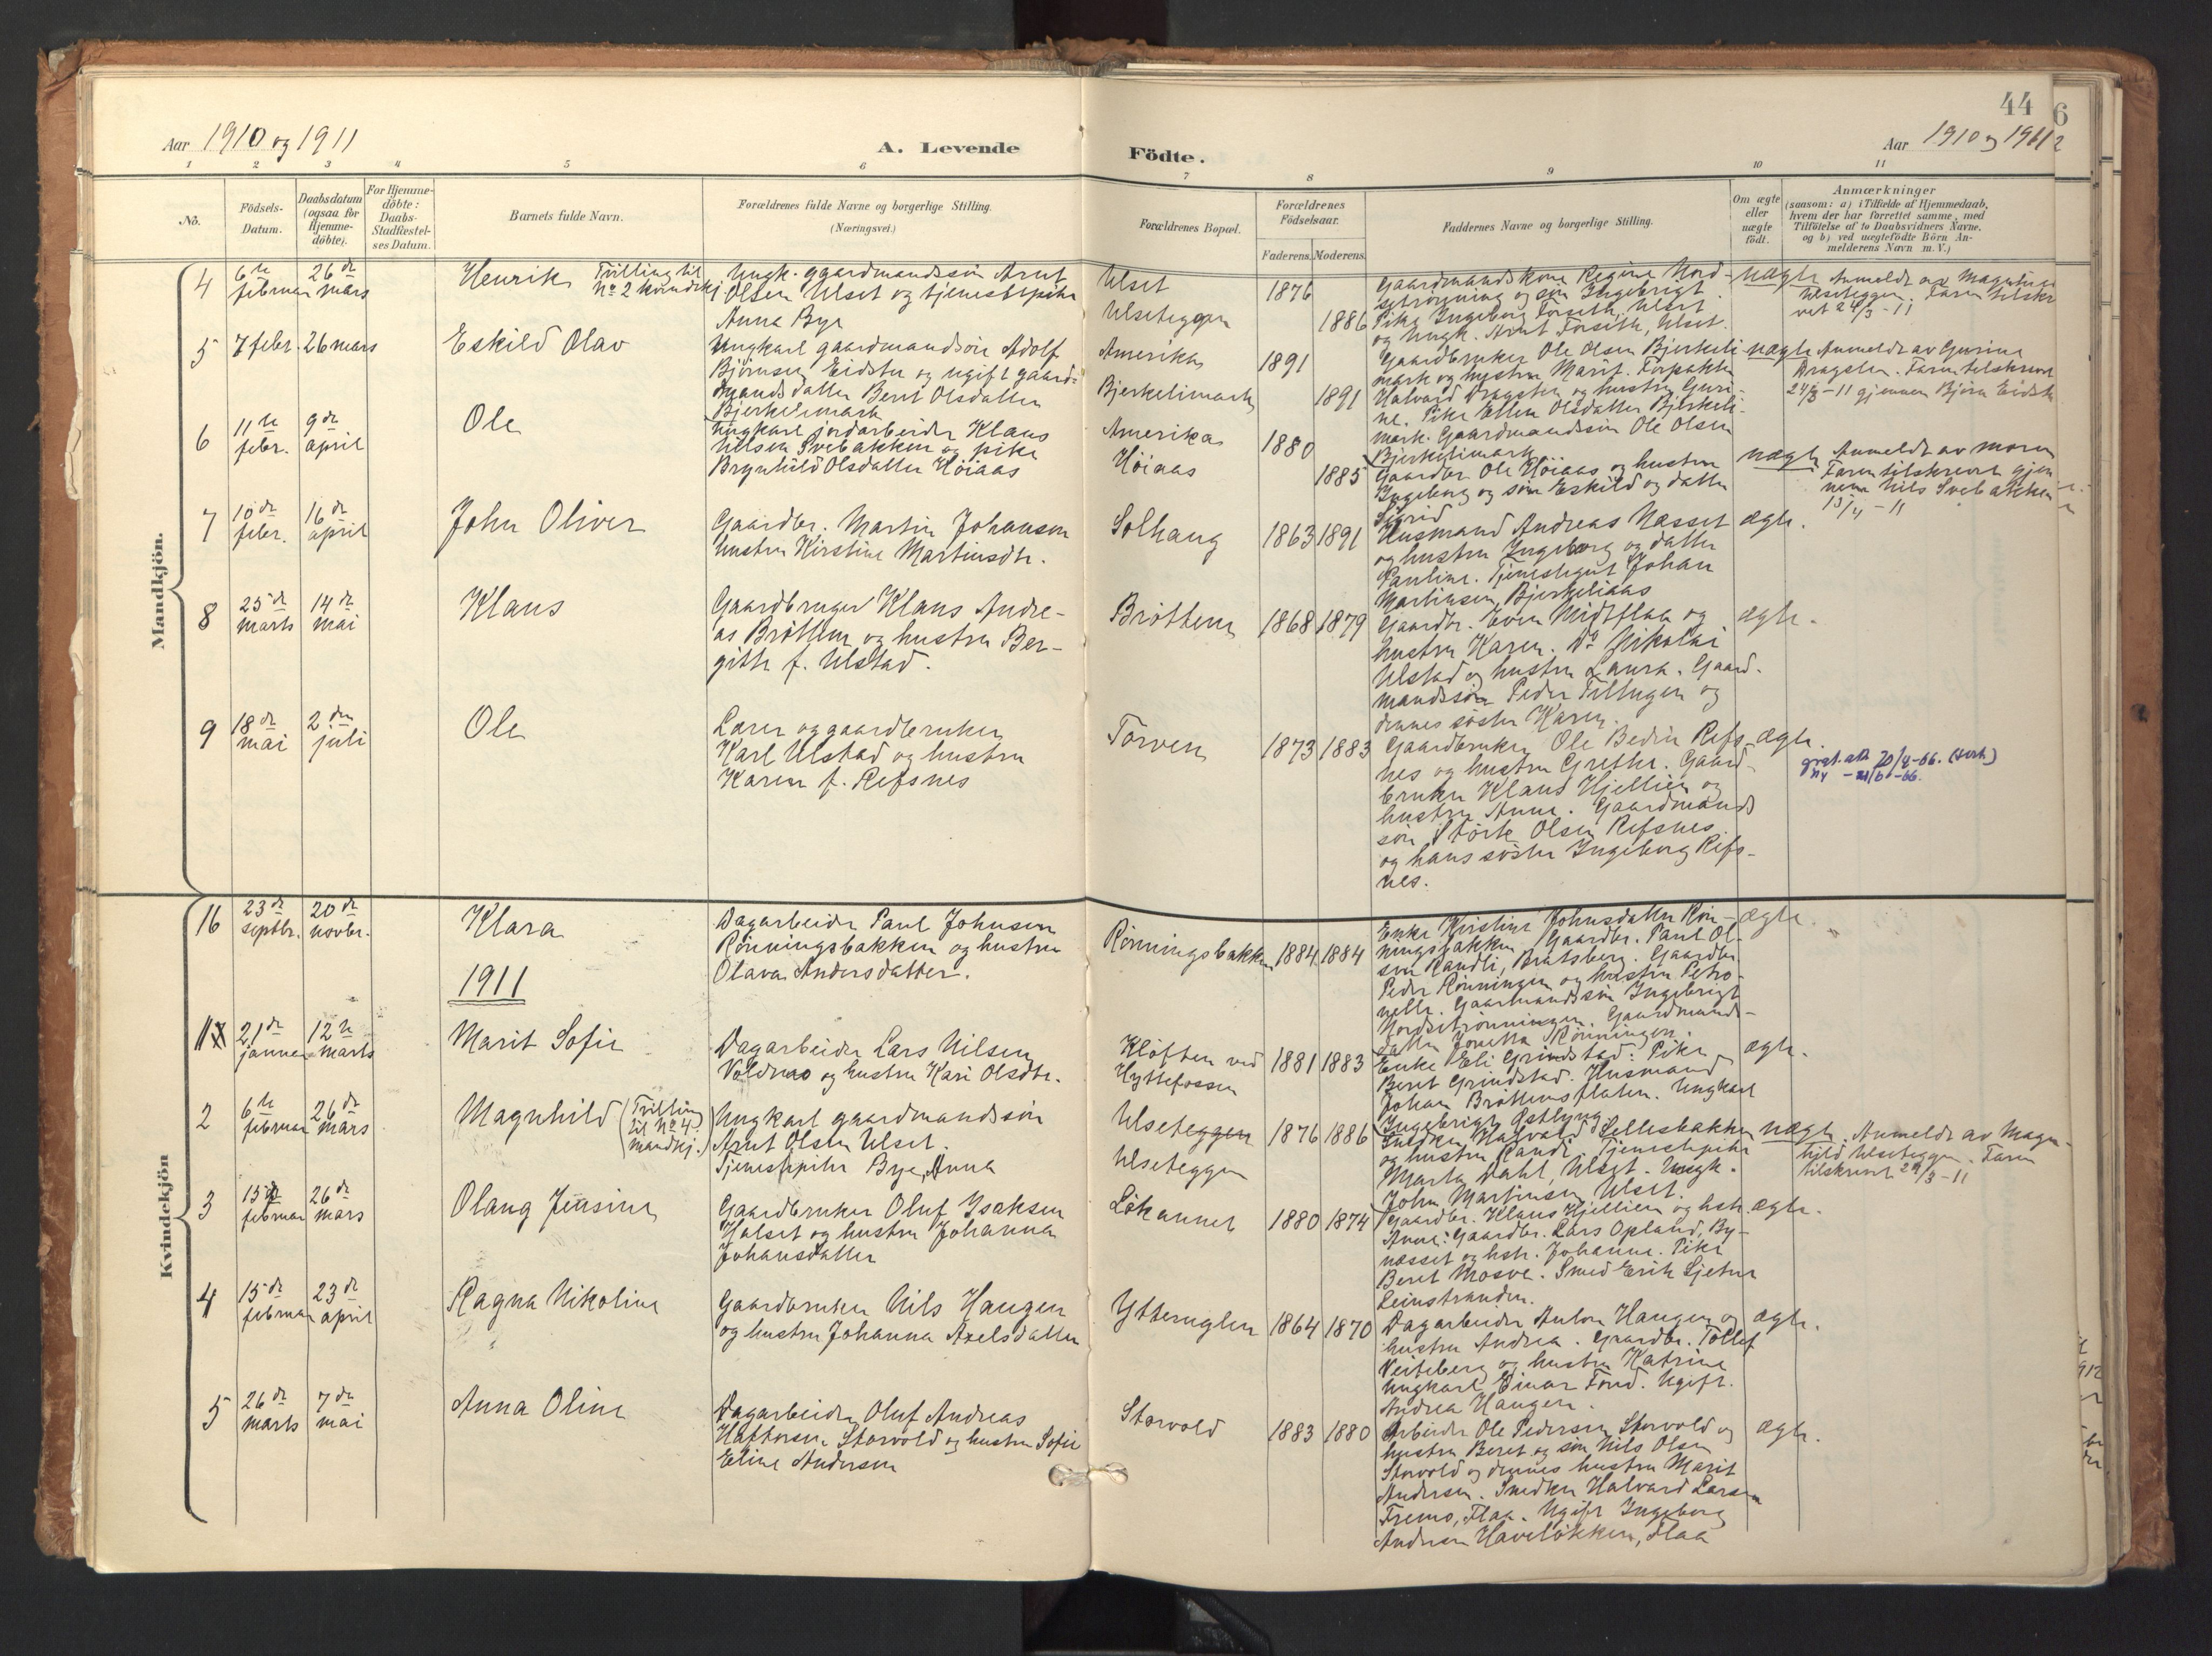 44
6
Aar 1910 og 1911
A. Levende
Födte.
Aar 1910 og 1911
2
1 2 3 4 5 6 7 8 9 10 11
No.
Födsels-
Datum.
Daabsdatum
(ogsaa for
Hjemme-
döbte).
For Hjemme-
döbte:
Daabs-
Stadfæstel-
ses Datum.
Barnets fulde Navn.
Forældrenes fulde Navne og borgerlige Stilling.
(Næringsvei.)
Forældrenes Bopæl.
Forældrenes
Födselsaar.
Faderens. Moderens.
Faddernes Navne og borgerlige Stilling.
Om ægte
eller
uægte
födt.
Anmærkninger
(saasom: a) i Tilfælde af Hjemmedaab,
hvem der har forrettet samme, med
Tilföielse af to Daabsvidners Navne,
og b) ved uægtefödte Börn An-
melderens Navn m. V.)
Mandkjön.
4
6te
februar
26de
mars
Henrik
Tvilling til
No 2 kvindekj
Ungk. gaardmandssön Arnt
Olsen Ulset og tjenestepike
Anna Bye
Ulset
Ulseteggen
1876
1886
Gaardmandskone Regine Nord-
setrönning og sön Ingebrigt.
Pike Ingeborg Forseth, Ulset
og Ungk. Arnt Forseth, Ulset.
uægte
Anmeldt av Magnhild
Ulseteggen. Faren tilskre
vet 24/3-11
5
7 febr.
26 mars
Eskild Olav
Ungkarl gaardmandssön Adolf
Björnsen Eidstu og ugift gaard-
mandsdatter Berit Olsdatter
Bjerkelimark
Amerika
Bjerkelimark
1891
1891
Gaardbruker Ole Olsen Bjerkeli
mark og hustru Marit. Forpakter
Halvard Dragsten og hustru Guri-
ne. Pike Ellen Olsdatter Bjerkeli-
mark. Gaardmandssön Ole Olsen
Bjerkelimark
uægte
Anmeldt av Gurine
Dragsten. Faren tilskrevet
24/3-11 gjennem Björn Eidstu
6
11te
febr.
9de
april
Ole
Ungkarl jordarbeider Klaus
Nilsen Svebakken og pike
Brynhild Olsdatter Höiaas
Amerika
Höiaas
1880
1885
Gaardbr. Ole Höiaas og hustru
Ingeborg og sön Eskild og datter
Sigrid
uægte
Anmeldt av moren
Faren tilskrevet gjen
nem Nils Svebakken
15/4-11
7
10de
febr.
16de
april
John Oliver
Gaardbr. Martin Johansen
hustru Kirstine Martinsdtr.
Solhaug
1863 1891
Husmand Andreas Næsset
og hustru Ingeborg og datter
Pauline. Tjenestegut Johan
Martinsen, Bjerkeliaas
ægte.
8
25de
marts
14de
mai
Klaus
Gaardbruger Klaus Andre-
as Bröttem og hustru Ber-
gitte f. Ulstad.
Bröttem
1868 1879
Gaardbr. Even Midtflaa og
hustru Karen. Do Nikolai
Ulstad og hustru Laura. Gaard-
mandssön Peder Tellugen og
dennes söster Karen.
ægte.
9
18de
mai
2den
juli
Ole
Lærer og gaardbruker
Karl Ulstad og hustru
Karen f. Refsnes
Torven
1873 1883
Gaardbruker Ole Bedin Refs-
nes og hustru Grethe. Gaard-
bruker Klaus Hjellien og
hustru Anne. Gaardmands
sön Störk Olsen Refsnes.
og hans söster Ingeborg Refs-
nes.
ægte.
Kvindekjön
16
23de
septbr.
20de
novbr.
Klara
Dagarbeider Paul Johnsen
Rönningsbakken og hustru
Olava Andersdatter.
Rönningsbakken
1884 1884
Enke Kirstine Johnsdatter Rön-
ningsbakken. Gaardbr. Paul Ol-
sen Randli, Bratsberg. Gaardbr.
Peder Rönningen og hustru Petro-
nelle. Gaarmandssön Ingebrigt
Nordsetrönningen. Gaardmands-
datter Josetta Rönningen.
ægte.
1911
1
21de
januar
12te
marts
Marit Sofie
Dagarbeider Lars Nilsen
Voldmo og hustru Kari Olsdtr.
Klöften ved
Hyttefossen
1881 1883
Enke Eli Grindstad. Pike
Beret Grindstad. Husmand
Johan Bröttemsflaten. Ungkarl
Ingebrigt Østlyng
ægte.
2
6te
februar
26de
mars
Magnhild
(Tvilling
til No 4
mandkj.)
Ungkarl gaardmandssön
Arnt Olsen Ulset.
Tjenestepike Bye, Anna
Ulseteggen
Ulseteggen
1876 1886
Snedker Halvard Lillebakken
og hustru Randi. Tjenestepike
Marta Dahl, Ulset. Ungk.
John Martinsen Ulset.
uægte.
Anmeldt av Magn-
hild Ulseteggen. Faren
tilskrevet 24/3-11
3
15de
februar
26de
mars
Olaug Jensine
Gaardbruker Oluf Isaksen
Halset og hustru Johanna
Johansdatter
Lökaunet
1880 1874
Gaardbr. Klaus Hjellien og hstr.
Anne. Gaardbr. Lars Opland, By-
næsset og hstr. Johanne. Pike
Beret Mosve. Smed Erik Sjetne
Leinstranden.
ægte.
4
15de
februar
23de
april
Ragna Nikoline
Gaardbruker Nils Haugen
og hustru Johanna Axelsdatter
Ytteruglen
1864 1870
Dagarbeider Anton Haugen og
hustru Andrea. Gaardbr. Tollef
Veiteberg og hustru Katrine
Ungkarl Einar Foud. Ugift.
Andrea Haugen.
ægte.
5
26de
marts
7de
mai
Anna Oline
Dagarbeider Oluf Andreas
Haftorsen Storvold og hustru Sofie
Eline Andersen
Storvold
1883 1880
Arbeider Ole Pedersen Storvold og
hustru Beret og sön Nils Olsen
Storvold og dennes hustru Marit
Andersen. Snedker Halvard Larsen
Fremo, Flaa. Ugift Ingeborg
Andersen Haveløkken, Flaa
ægte.